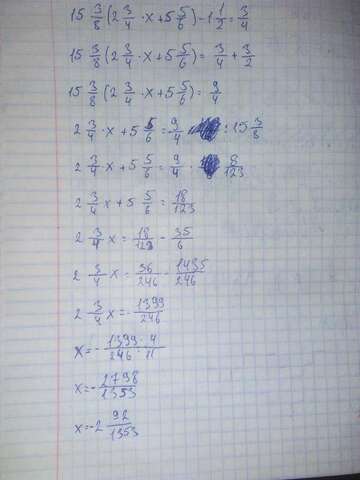 15 3/8 (2 3/4 · x + 5 5/6) - 1 1/2 = 3/4
15 3/8 (2 3/4 · x + 5 5/6) = 3/4 + 3/2
15 3/8 (2 3/4 · x + 5 5/6) = 9/4
2 3/4 · x + 5 5/6 = 9/4 : 15 3/8
2 3/4 x + 5 5/6 = 9/4 · 8/123
2 3/4 x + 5 5/6 = 18/123
2 3/4 x = 18/123 - 35/6
2 3/4 x = 36/246 - 1435/246
2 3/4 x = - 1399/246
x = - 1399 · 4/246 · 11
x = - 2798/1353
x = -2 92/1353